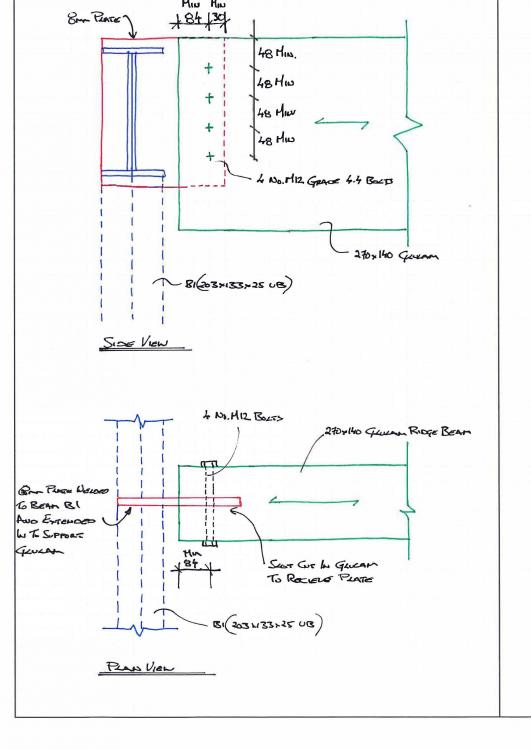 MIN MIN
84 30
8mm PLATE
48 MIN.
48 MIN
48 MIN
48 MIN
4 No. M12 GRADE 4.4 BOLTS
270x140 GLULAM
B1(203x133x25 UB)
SIDE VIEW
4 No. M12 BOLTS
270x140 GLULAM RIDGE BEAM
8mm PLATE WELDED
TO BEAM B1
AND EXTENDED
IN TO SUPPORT
GLULAM
MIN
84
SLOT CUT IN GLULAM
TO RECIEVE PLATE
B1(203x133x25 UB)
PLAN VIEW